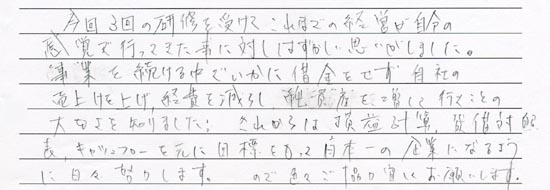 今回3回の研修を受けて これまでの経営が自分の
感覚で行ってきた事に対しはずかしい思いがしました。
事業を続ける中でいかに借金をせず 自社の
売上げを上げ、経費を減らし、純資産を増して行くことの
大切さを知りました。これからは損益計算、貸借対照
表、キャッシュフローを元に目標をもって日本一の企業になるよう
に日々努力します。 ので色々ご協力宜しくお願いします。